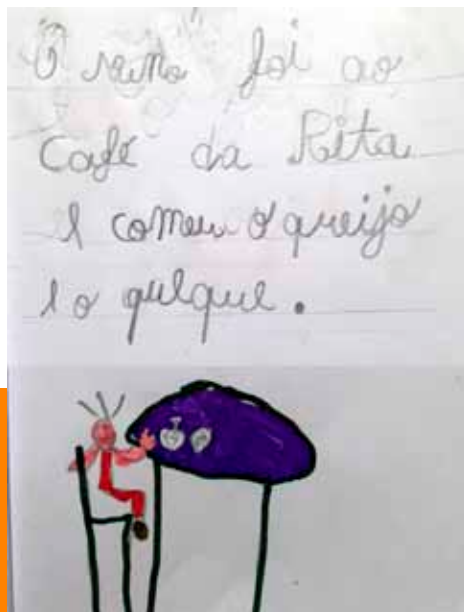 O
foi ao
Café da Rita
e comeu o queijo
e o quelque.